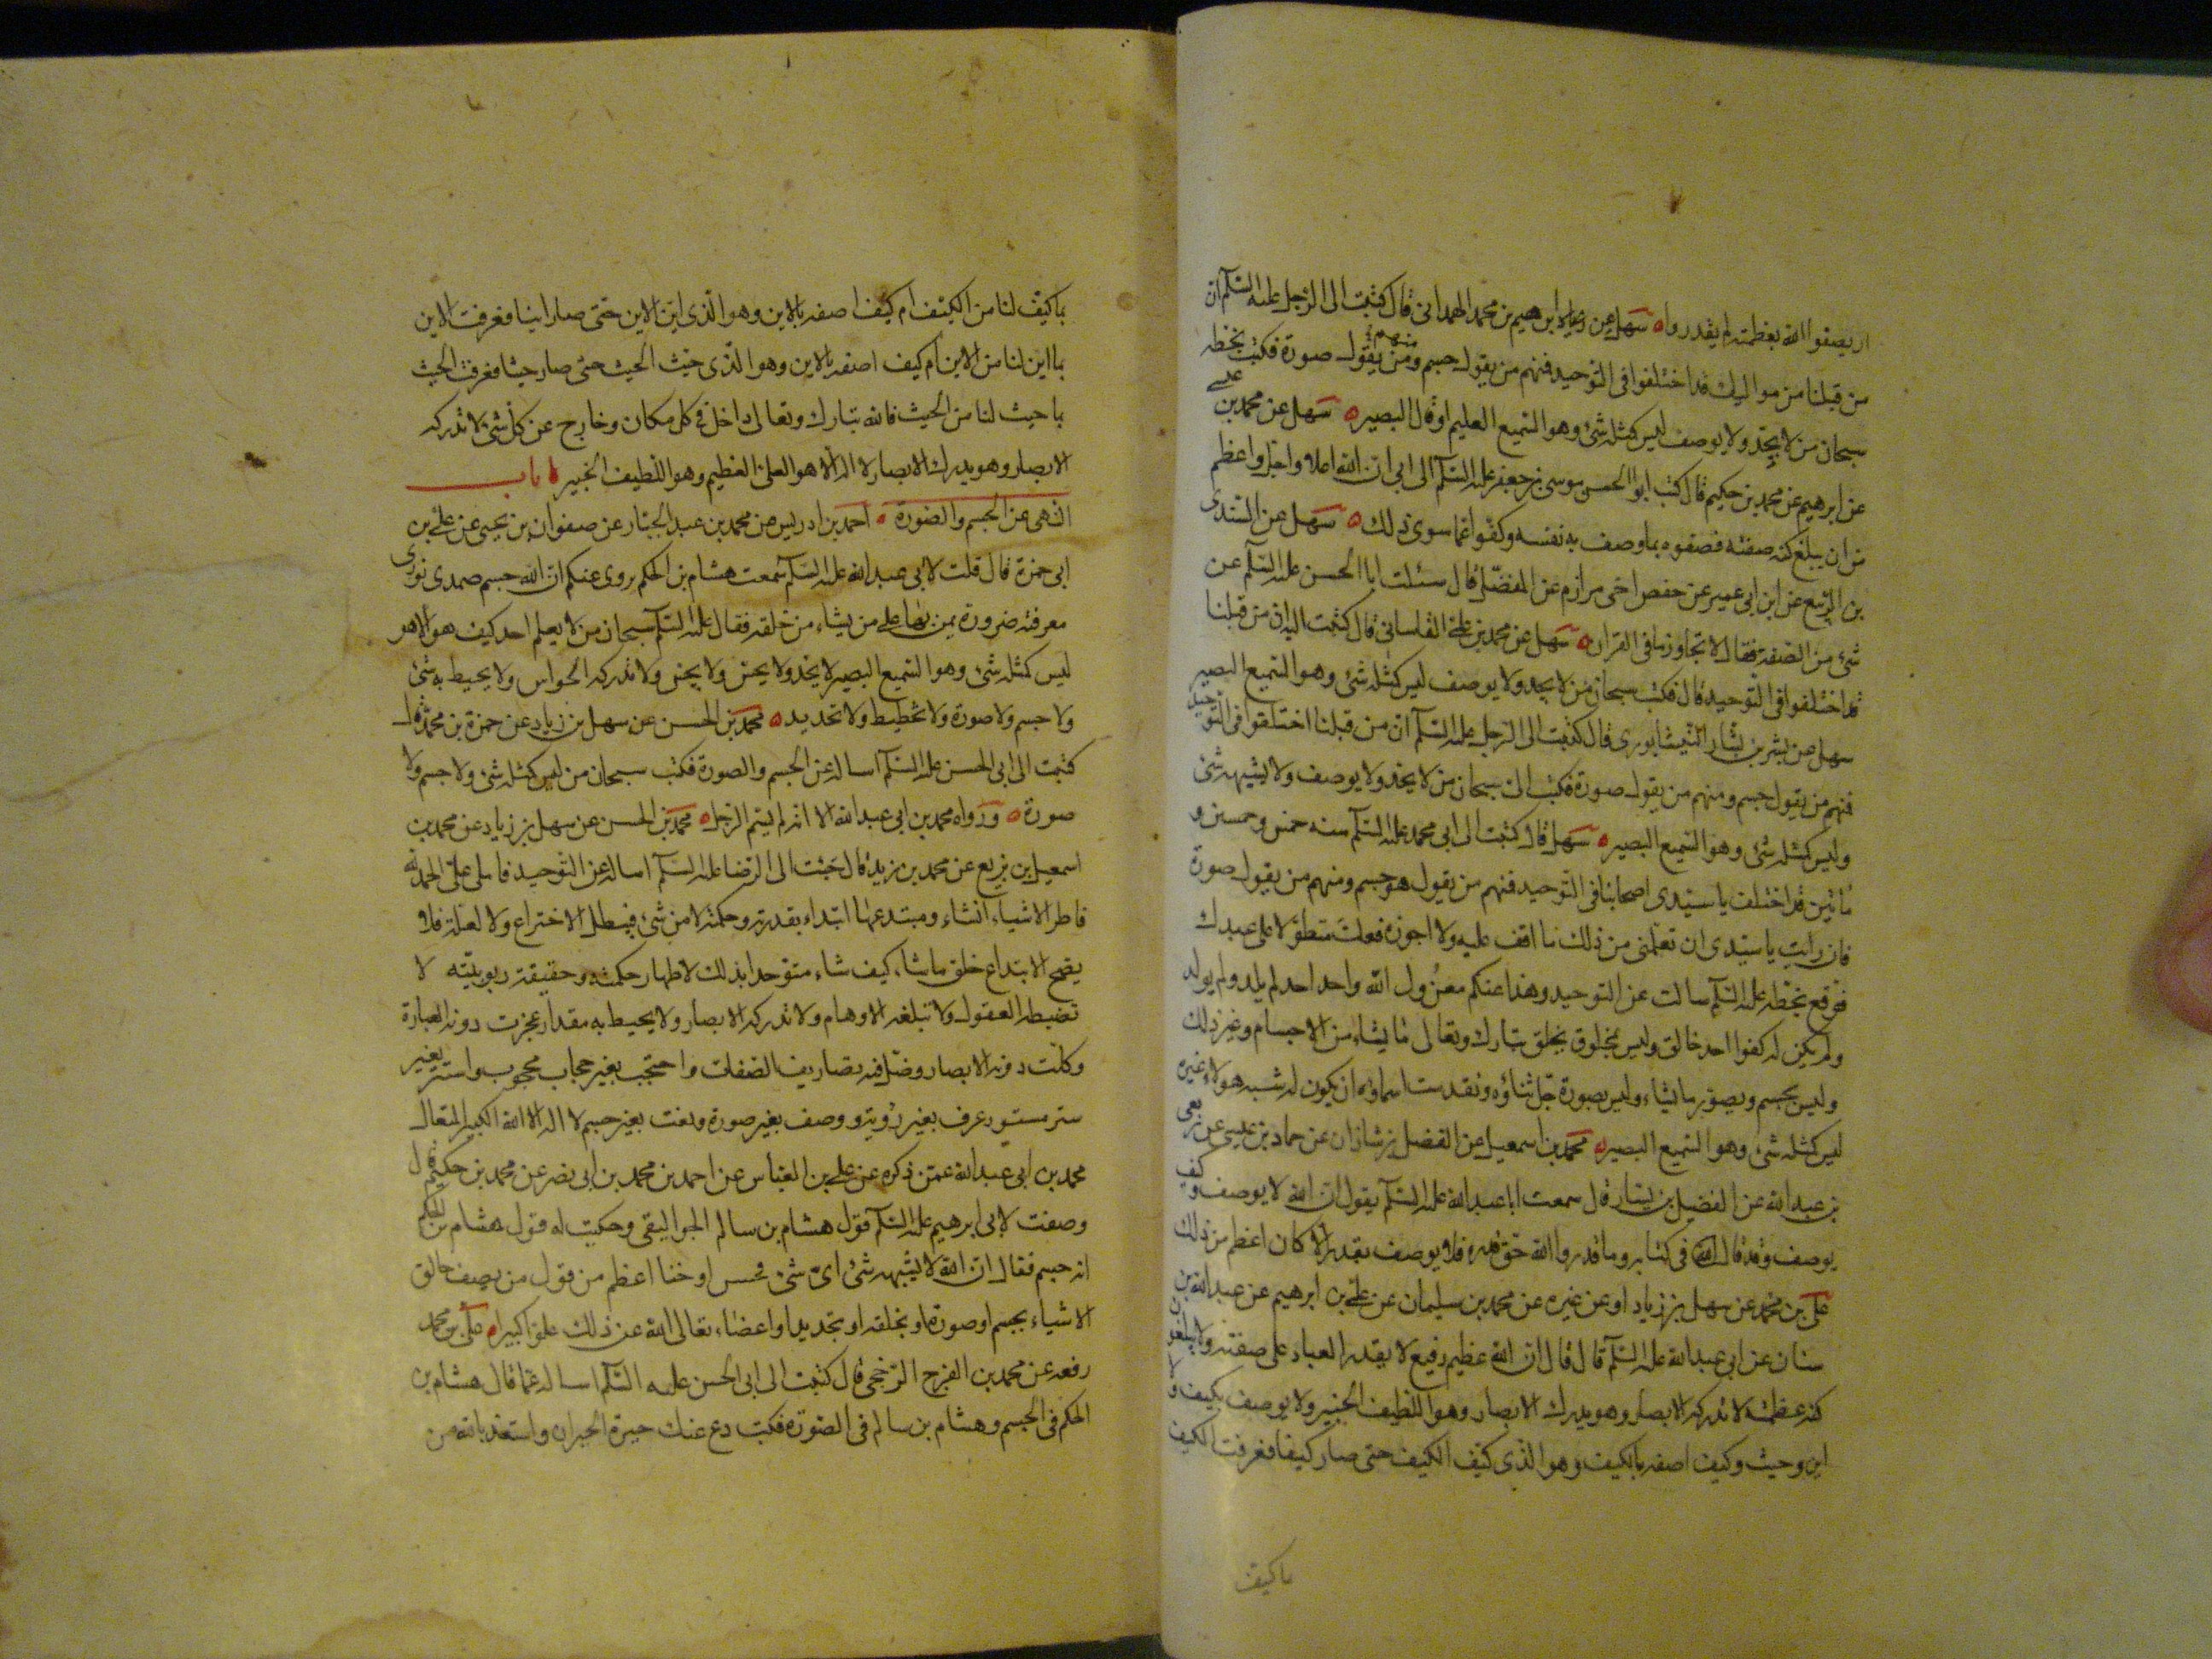 ان يصفوا الله بعظمته لم يقدروا ه سهل عن ابرهيم بن محمد الهمدانى قال كتبت الى الرجل عليه السلم ان
من قبلنا من مواليك قد اختلفوا فى التوحيد فمنهم من يقول جسم ومنهم من يقول صورة فكتب بخطه
سبحان من لا يحد ولا يوصف ليس كمثله شئ وهو السميع العليم او قال البصير ه سهل عن محمد بن عيسى
عن ابرهيم عن محمد بن حكيم قال كتب ابو الحسن موسى بن جعفر عليه السلم الى ابى ان الله اعلا واجل واعظم
من ان يبلغ كنه صفته فصفوه بما وصف به نفسه وكفوا عما سوى ذلك ه سهل عن السندى
بن الربيع عن ابن ابى عمير عن حفص اخى مرازم عن المفضل قال سئلت ابا الحسن عليه السلم عن
شئ من الصفة فقال لا تجاوز ما فى القران ه سهل عن محمد بن على القاسانى قال كتبت اليه ان من قبلنا
قد اختلفوا فى التوحيد قال فكتب سبحان من لا يحد ولا يوصف ليس كمثله شئ وهو السميع البصير
سهل عن بشر بن بشار النيشابورى قال كتبت الى الرجل عليه السلم ان من قبلنا اختلفوا فى التوحيد
فمنهم من يقول جسم ومنهم من يقول صورة فكتب الى سبحان من لا يحد ولا يوصف ولا يشبهه شئ
وليس كمثله شئ وهو السميع البصير ه سهل قال كتبت الى ابى محمد عليه السلم سنه خمس وخمسين و
مأتين قد اختلف يا سيدى اصحابنا فى التوحيد فمنهم من يقول هو جسم ومنهم من يقول صورة
فان رايت يا سيدى ان تعلمنى من ذلك ما اقف عليه ولا اجوزه فعلت متطولا على عبدك
فوقع بخطه عليه السلم سالت عن التوحيد وهذا عنكم معزول الله واحد احد لم يلد ولم يولد
ولم يكن له كفوا احد خالق وليس بمخلوق يخلق تبارك وتعالى ما يشاء من الاجسام وغير ذلك
وليس بجسم ويصور ما يشاء وليس بصورة جل ثناؤه وتقدست اسماؤه ان يكون له شبه هو لا غيره
ليس كمثله شئ وهو السميع البصير ه محمد بن اسمعيل عن الفضل بن شاذان عن حماد بن عيسى عن ربعى
بن عبد الله عن الفضيل بن يسار قال سمعت ابا عبد الله عليه السلم يقول ان الله لا يوصف وكيف
يوصف وقد قال الله فى كتابه وما قدروا الله حق قدره فلا يوصف بقدر الا كان اعظم من ذلك
على بن محمد عن سهل بن زياد او عن غيره عن محمد بن سليمان عن على بن ابرهيم عن عبد الله بن
سنان عن ابى عبد الله عليه السلم قال قال ان الله عظيم رفيع لا يقدر العباد على صفته ولا يبلغون
كنه عظمته لا تدركه الابصار وهو يدرك الابصار وهو اللطيف الخبير ولا يوصف بكيف ولا
اين وحيث وكيف اصفه بالكيف وهو الذى كيف الكيف حتى صار كيفا فعرفت الكيف
ماكيف
بما كيف لنا من الكيف ام كيف اصفه بالاين وهو الذى اين الاين حتى صار اينا فعرفت الاين
بما اين لنا من الاين ام كيف اصفه بالاين وهو الذى حيث الحيث حتى صار حيثا فعرفت الحيث
بما حيث لنا من الحيث فالله تبارك وتعالى داخل فى كل مكان وخارج عن كل شئ لا تدركه
الابصار وهو يدرك الابصار لا اله الا هو العلى العظيم وهو اللطيف الخبير ه باب
النهى عن الجسم والصورة ه احمد بن ادريس عن محمد بن عبد الجبار عن صفوان بن يحيى عن على بن
ابى حمزة قال قلت لابى عبد الله عليه السلم سمعت هشام بن الحكم يروى عنكم ان الله جسم صمدى نورى
معرفته ضرورة يمن بها على من يشاء من خلقه فقال عليه السلم سبحان من لا يعلم احد كيف هو الا هو
ليس كمثله شئ وهو السميع البصير لا يحد ولا يحس ولا يجس ولا تدركه الحواس ولا يحيط به شئ
ولا جسم ولا صورة ولا تخطيط ولا تحديد ه محمد بن الحسن عن سهل بن زياد عن حمزة بن محمد قال
كتبت الى ابى الحسن عليه السلم اساله عن الجسم والصورة فكتب سبحان من ليس كمثله شئ ولا جسم ولا
صورة ه ورواه محمد بن ابى عبد الله الا انه لم يسم الرجل ه محمد بن الحسن عن سهل بن زياد عن محمد بن
اسمعيل بن بزيع عن محمد بن زيد قال جئت الى الرضا عليه السلم اساله عن التوحيد فاملى على الحمد لله
فاطر الاشياء انشاء ومبتدعها ابتداء بقدرته وحكمته لا من شئ فيبطل الاختراع ولا لعلة فلا
يصح الابتداع خلق ما شاء كيف شاء متوحدا بذلك لاظهار حكمته وحقيقة ربوبيته لا
تضبطه العقول ولا تبلغه الاوهام ولا تدركه الابصار ولا يحيط به مقدار عجزت دونه العبارة
وكلت دونه الابصار وضل فيه تصاريف الصفات واحتجب بغير حجاب محجوب واستتر بغير
ستر مستور عرف بغير رؤية ووصف بغير صورة ونعت بغير جسم لا اله الا الله الكبير المتعال
محمد بن ابى عبد الله عمن ذكره عن على بن العباس عن احمد بن محمد بن ابى نصر عن محمد بن حكيم قال
وصفت لابى ابرهيم عليه السلم قول هشام بن سالم الجواليقى وحكيت له قول هشام بن الحكم
انه جسم فقال ان الله لا يشبهه شئ اى شئ فحس او خنا اعظم من قول من يصف خالق
الاشياء بجسم او صورة او بخلقه او بتحديد او اعضاء تعالى الله عن ذلك علوا كبيرا ه على بن محمد
رفعه عن محمد بن الفرج الرخجى قال كتبت الى ابى الحسن عليه السلم اساله عما قال هشام بن
الحكم فى الجسم وهشام بن سالم فى الصورة فكتب دع عنك حيرة الحيران واستعذ بالله من